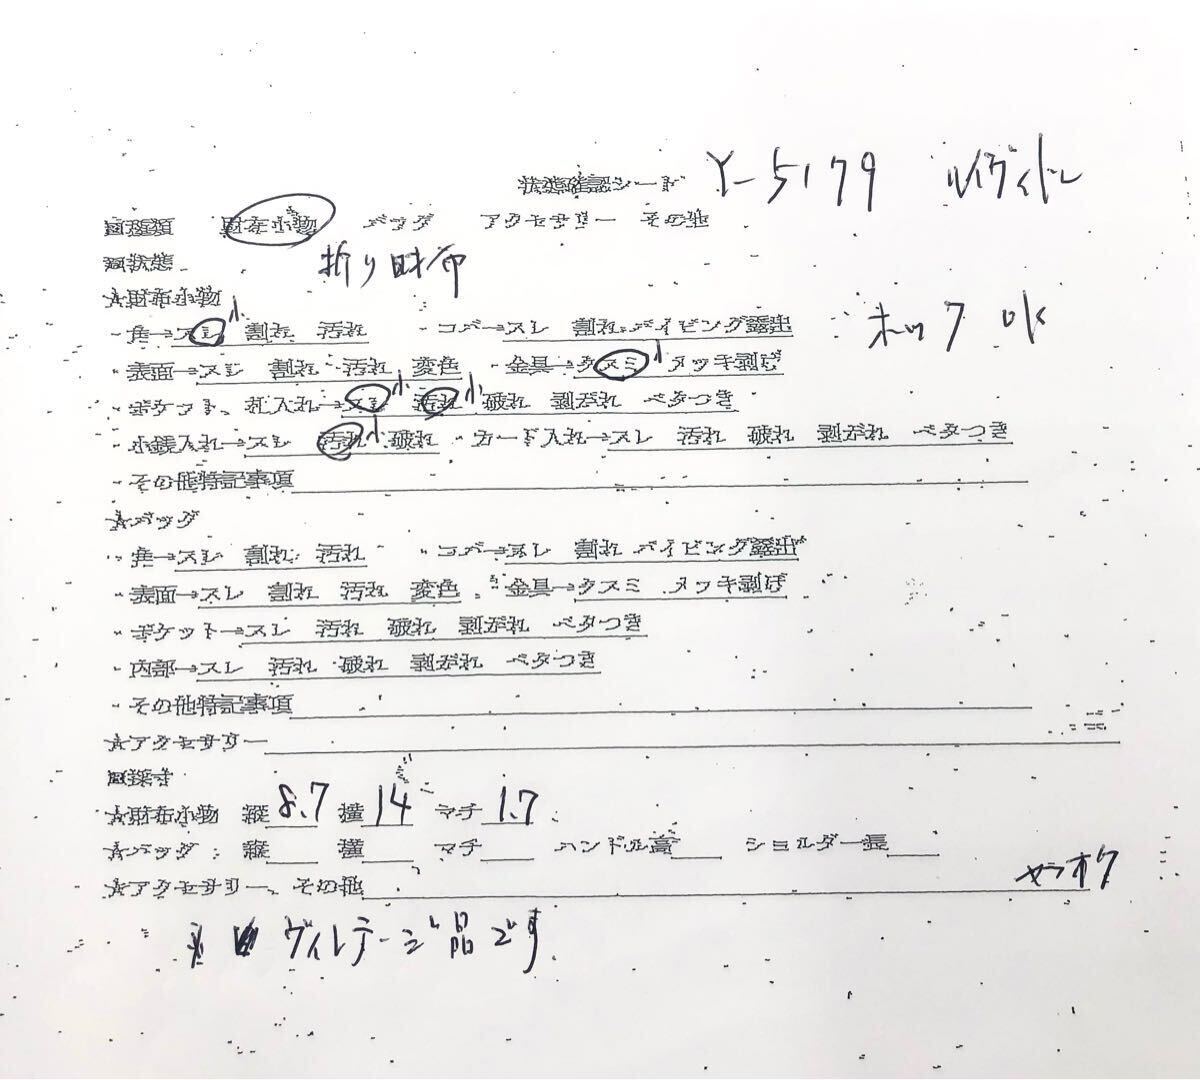 状態確認シート Y-5179 ルイヴィトン
□種類 財布小物 バッグ アクセサリー その他
□状態 折り財布
☆財布小物
・角→スレ小 割れ 汚れ ・コバ→スレ 割れ パイピング露出 ホック OK
・表面→スレ 割れ 汚れ 変色 ・金具→クスミ小 メッキ剥げ
・ポケット、札入れ→スレ小 汚れ小 破れ 剥がれ ベタつき
・小銭入れ→スレ 汚れ小 破れ ・カード入れ→スレ 汚れ 破れ 剥がれ ベタつき
・その他特記事項
☆バッグ
・角→スレ 割れ 汚れ ・コバ→スレ 割れ パイピング露出
・表面→スレ 割れ 汚れ 変色 ・金具→クスミ メッキ剥げ
・ポケット→スレ 汚れ 破れ 剥がれ ベタつき
・内部→スレ 汚れ 破れ 剥がれ ベタつき
・その他特記事項
☆アクセサリー
□採寸
☆財布小物 縦8.7 横14 マチ1.7
☆バッグ: 縦 横 マチ ハンドル高 ショルダー長
☆アクセサリー、その他 ヤフオク
ヴィンテージ品です